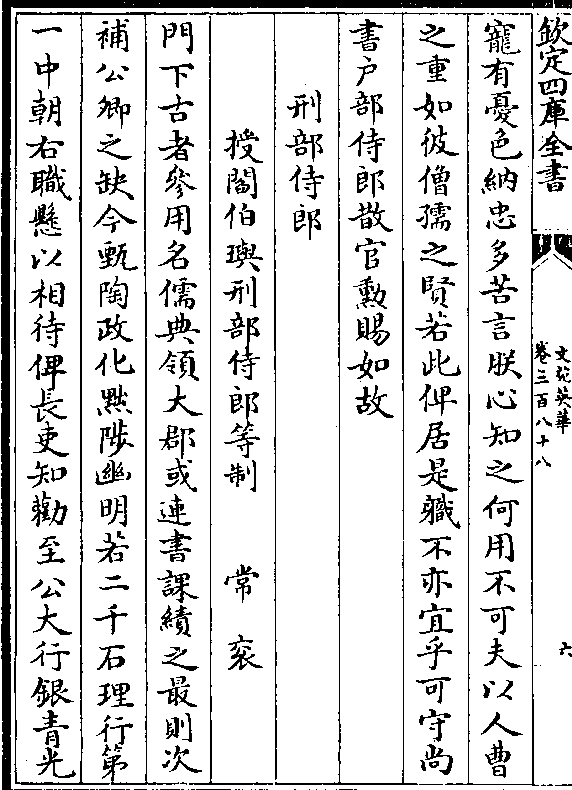 欽定四庫全書
文苑英華
卷三百八十八
六
寵有憂色納忠多苦言朕心知之何用不可夫以人曹
之重如彼僧孺之賢若此俾居是職不亦宜乎可守尚
書户部侍郎散官勲賜如故
刑部侍郎
授閻伯璵刑部侍郎等制 常衮
門下古者參用名儒典領大郡或連書課績之最則次
補公卿之缺今甄陶政化黙陟幽明若二千石理行第
一中朝右職懸以相待俾長吏知勸至公大行銀青光